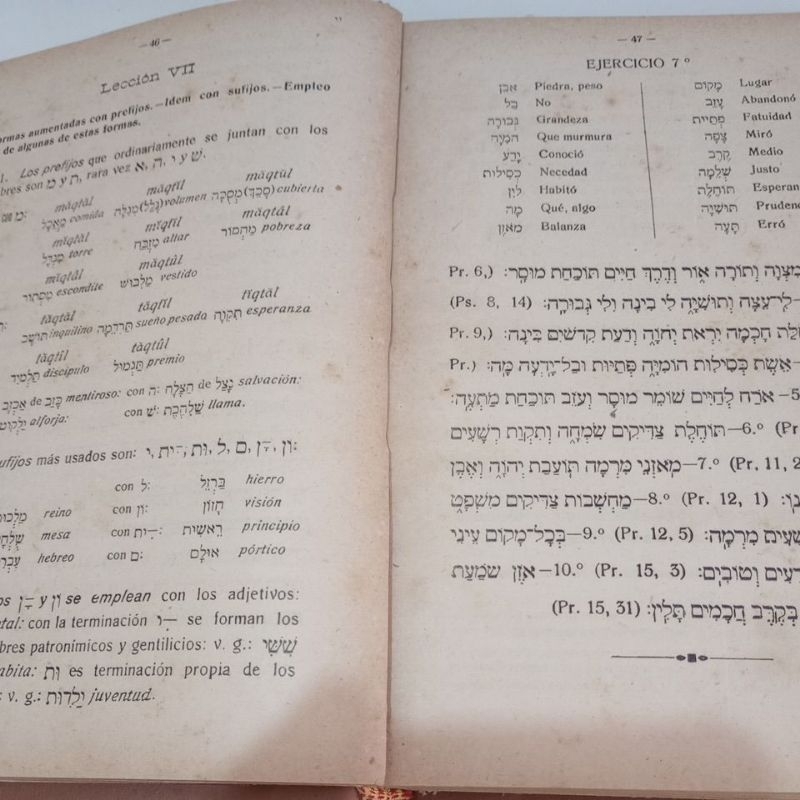 — 46 —
Lección VII
ormas aumentadas con prefijos.—Idem con sufijos.—Empleo
de algunas de estas formas.
1. Los prefijos que ordinariamente se juntan con los
bres son מ y ת, rara vez א, ה, י y שׁ.
māqtāl māqtīl māqtūl
מ: מַאֲכָל comida (גָּלַל) מְגִלָּה volumen (סָכַךְ) מְסֻכָה cubierta
mīqtāl mīqtīl māqtāl
מִגְדָּל torre מִזְבֵּחַ altar מַחְסוֹר pobreza
mīqtāl māqtūl
מִסְתּוֹר escondite מַלְבּוּשׁ vestido
tāqtāl tāqtīl tīqtāl
תּוֹשָׁב inquilino תַּרְדֵּמָה sueño pesada תִּקְוָה esperanza
tāqtīl tāqtūl
תַּלְמִיד discípulo תַּגְמוּל premio
אַכְזָב de כָּזַב mentiroso: con ה: הַצָּלָה de נָצַל salvación:
יַלְקוּט alforja: con שׁ: שַׁלְהֶבֶת llama.
ufijos más usados son:
con ל: בַּרְזֶל hierro
מַלְכוּת reino con וֹן: חָזוֹן visión
mesa con ־ִית: רֵאשִׁית principio
hebreo con ם: אוּלָם pórtico
os ־ָן y וֹן se emplean con los adjetivos:
etal: con la terminación ־ִי se forman los
bres patronímicos y gentilicios: v. g.: שִׁשִּׁי
abita: וּת es terminación propia de los
: v. g.: יַלְדוּת juventud.
— 47 —
EJERCICIO 7.º
אֶבֶן Piedra, peso
בַּל No
גְּבוּרָה Grandeza
הֹמִיָּה Que murmura
יָדַע Conoció
כְּסִילוּת Necedad
לִין Habitó
מָה Qué, algo
מֹאזֵן Balanza
מָקוֹם Lugar
עָזַב Abandonó
פְּתַיּוּת Fatuidad
צָפָה Miró
קֶרֶב Medio
Justo
תּוֹחֶלֶת Esperan
תּוּשִׁיָּה Pruden
תָּעָה Erró
מִצְוָה וְתוֹרָה אוֹר וְדֶרֶךְ חַיִּים תּוֹכַחַת מוּסָר: (Pr. 6,
—לִי־עֵצָה וְתוּשִׁיָּה לִי בִינָה וְלִי גְבוּרָה: (Ps. 8, 14)
חִלַּת חָכְמָה יִרְאַת יְהוָֹה וְדַעַת קְדֹשִׁים בִּינָה: (Pr. 9,
—אֵשֶׁת כְּסִילוּת הוֹמִיָּה פְּתַיּוּת וּבַל־יָדְעָה מָּה: (Pr.
5—אֹרַח לְחַיִּים שׁוֹמֵר מוּסָר וְעֹזֵב תּוֹכַחַת מַתְעֶה:
(Pr 6.º—תּוֹחֶלֶת צַדִּיקִים שִׂמְחָה וְתִקְוַת רְשָׁעִים
(Pr. 11, 2 7.º—מֹאזְנֵי מִרְמָה תּוֹעֲבַת יְהוָֹה וְאֶבֶן
נוֹ: (Pr. 12, 1) 8.º—מַחְשְׁבוֹת צַדִּיקִים מִשְׁפָּט
שָׁעִים מִרְמָה: (Pr. 12, 5) 9.º—בְּכָל־מָקוֹם עֵינֵי
רָעִים וְטוֹבִים: (Pr. 15, 3) 10.º—אֹזֶן שֹׁמַעַת
בְּקֶרֶב חֲכָמִים תָּלִין: (Pr. 15, 31)